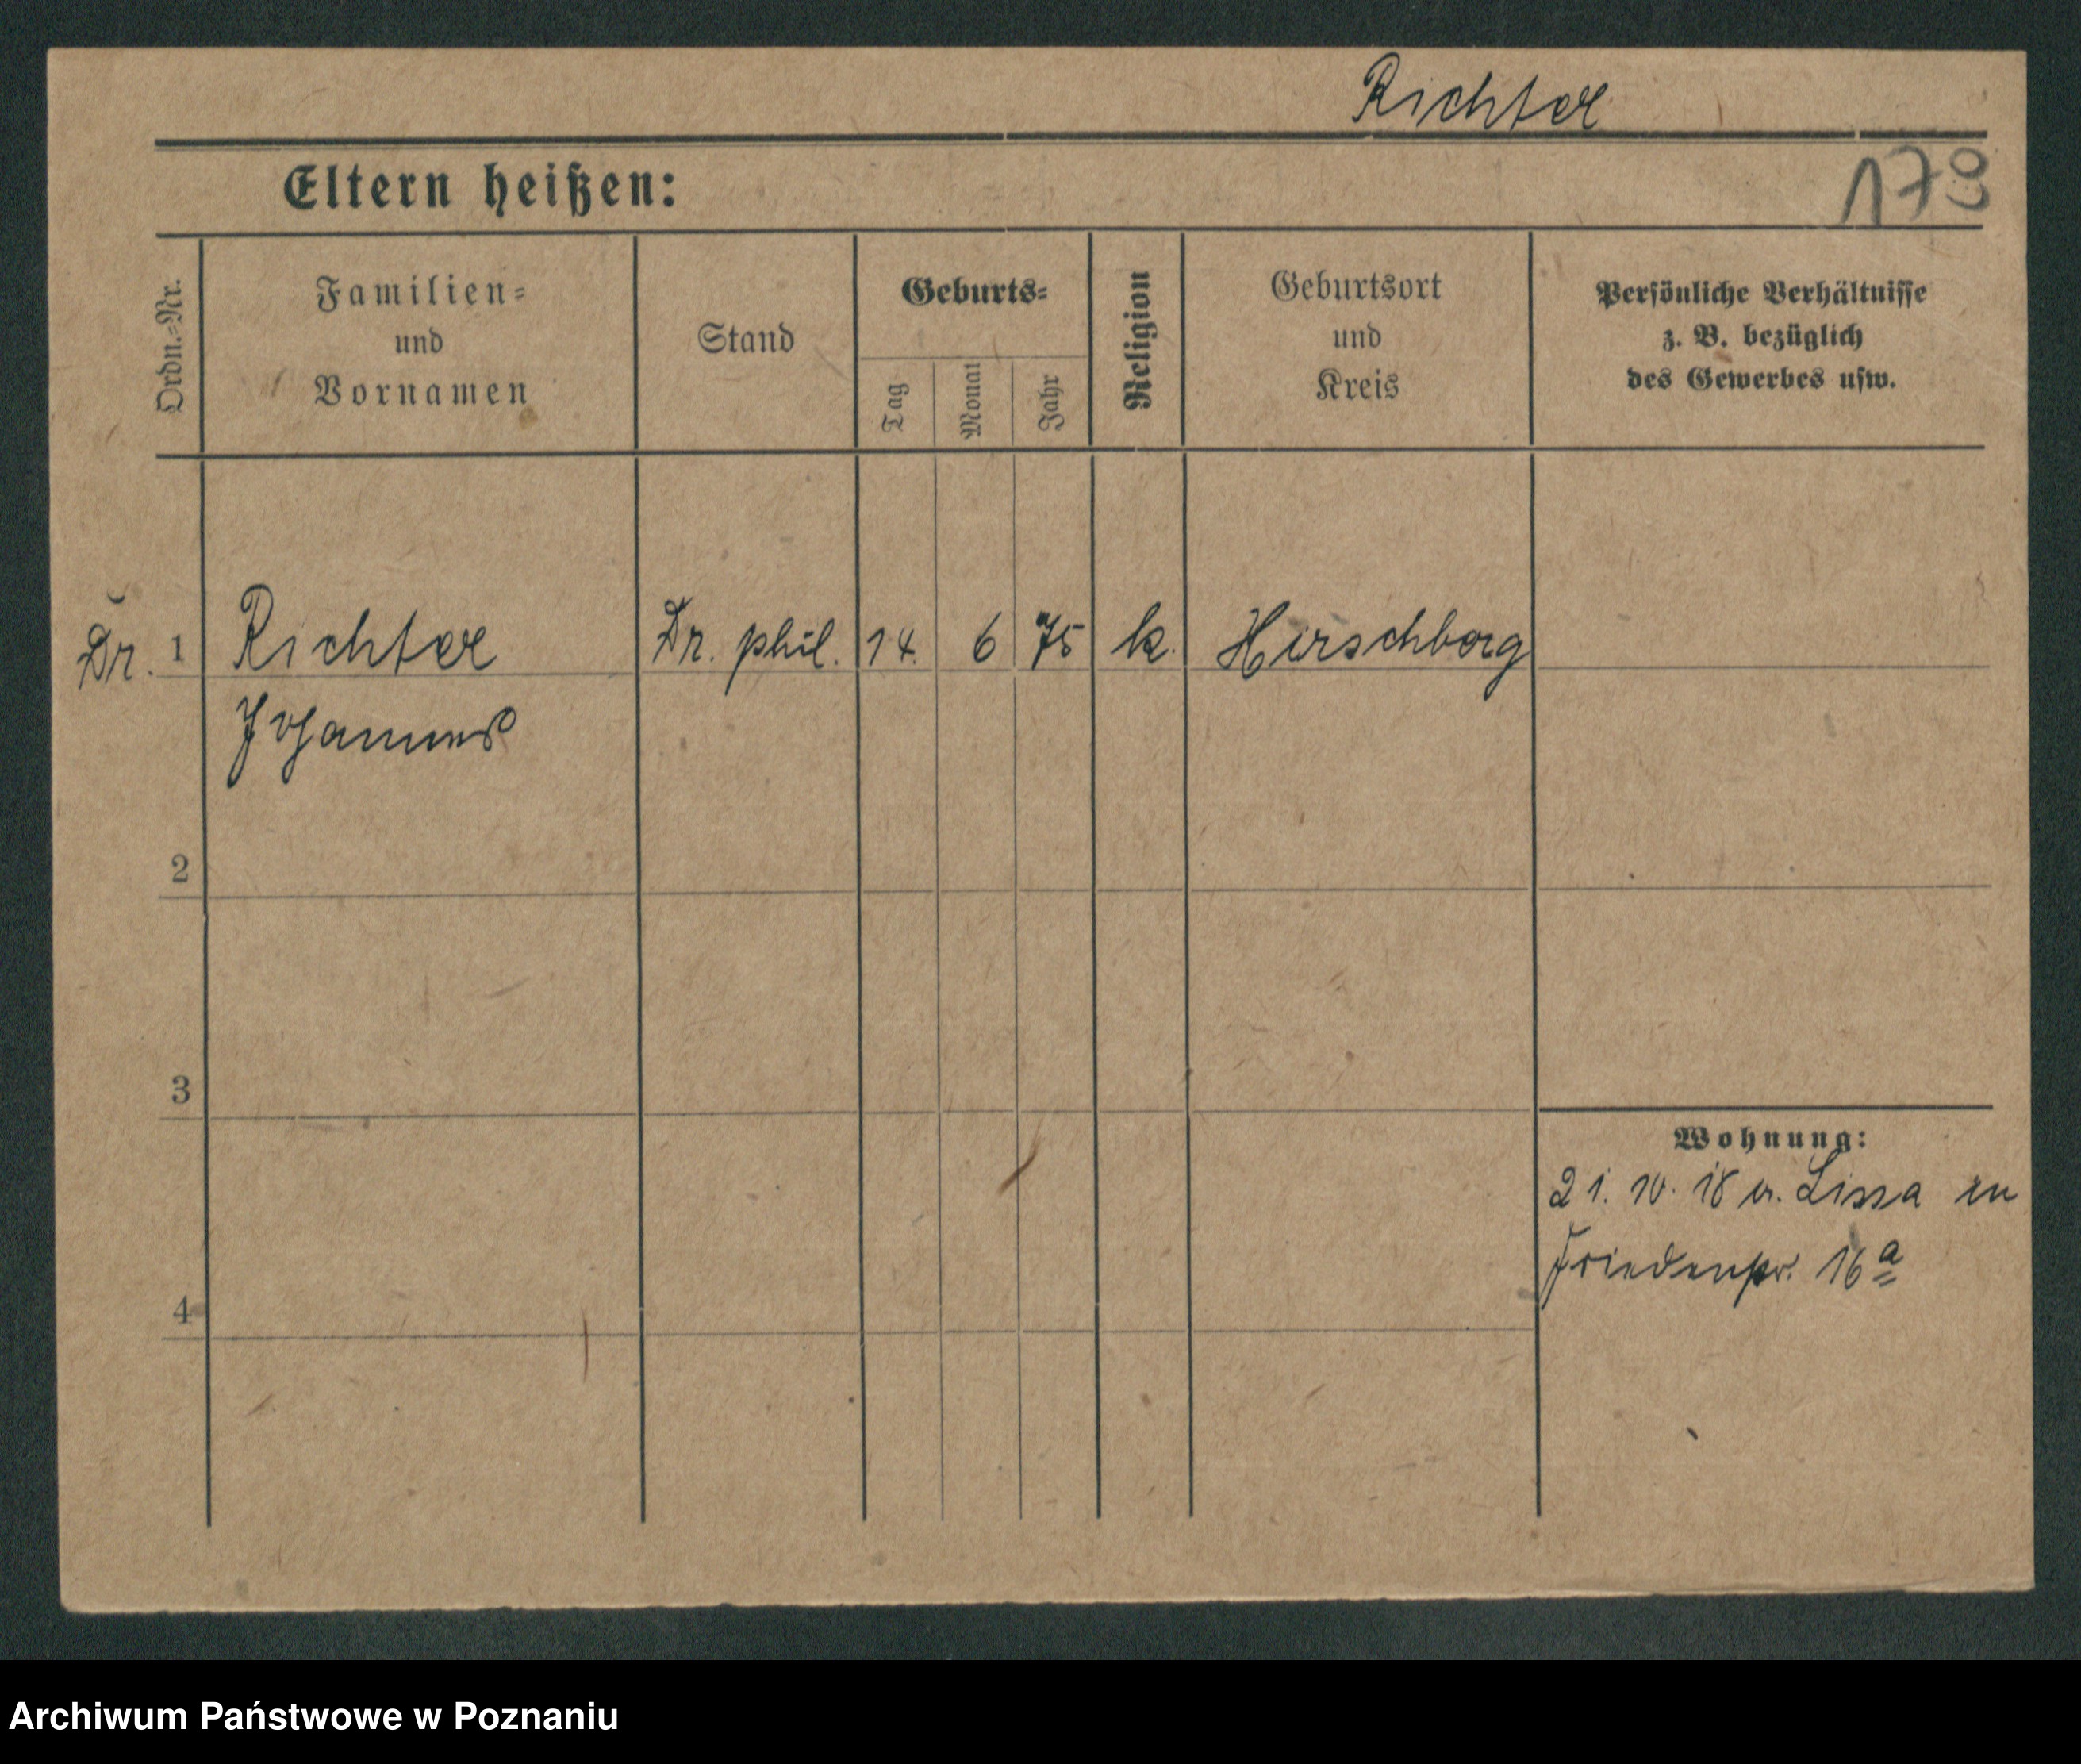 Richter
178
Eltern heißen:
Ordn.=Nr.
Familien=
und
Vornamen
Stand
Geburts=
Tag
Monat
Jahr
Religion
Geburtsort
und
Kreis
Persönliche Verhältnisse
z. B. bezüglich
des Gewerbes usw.
Dr. 1 Richter Dr. phil. 14. 6 75 k. Hirschberg
Johannes
2
3
4
Wohnung:
21. 10. 18 v. Lissa
16a
Archiwum Państwowe w Poznaniu